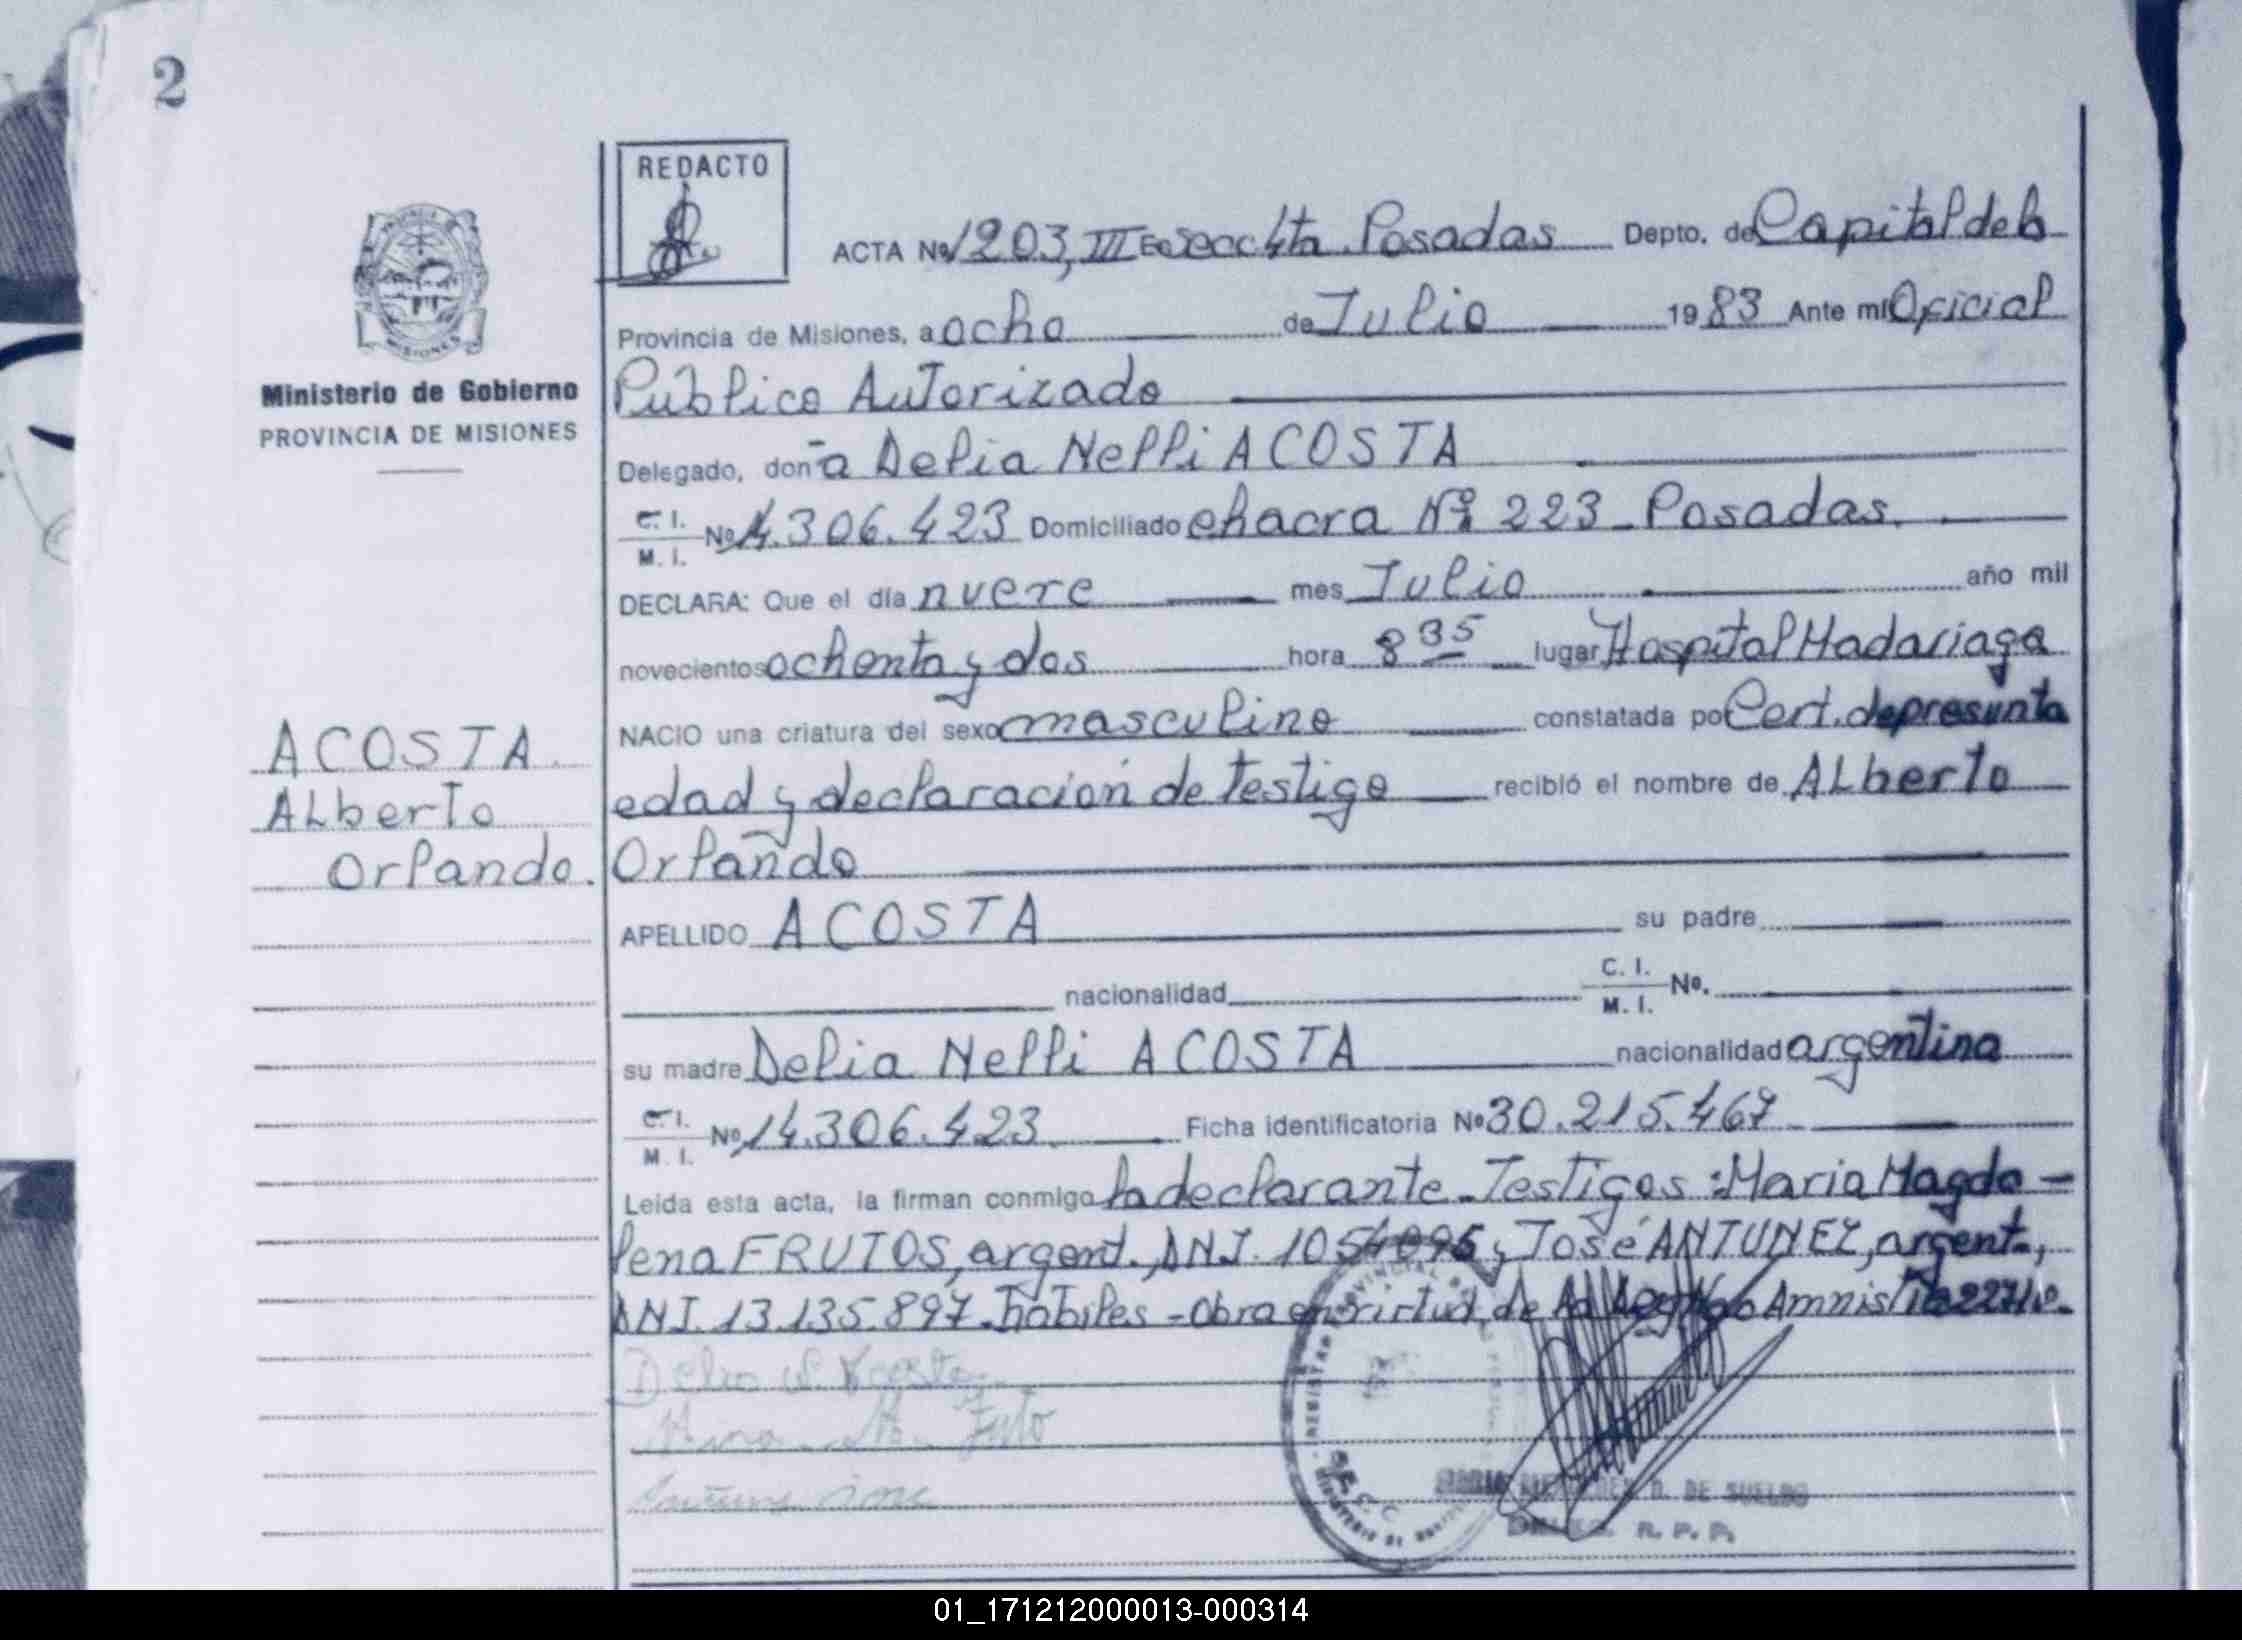 2
REDACTO
ACTA Nº 1203, III Secc 4ta Posadas Depto. de Capital de la
Provincia de Misiones, a ocho de Julio 1983 Ante mi Oficial
Ministerio de Gobierno
PROVINCIA DE MISIONES
Público Autorizado
Delegado, doña Delia Nelli ACOSTA
C. I. M. I. Nº 14.306.423 Domiciliado chacra Nº 223 - Posadas.
DECLARA: Que el día nueve mes Julio año mil
novecientos ochenta y dos hora 8 35 lugar Hospital Madariaga
NACIO una criatura del sexo masculino constatada por Cert. de presunta
edad y declaración de testigo recibló el nombre de ALberto
Orlando
ACOSTA
ALberto
Orlando.
APELLIDO ACOSTA su padre
nacionalidad C. I. M. I. Nº.
su madre Delia Nelli ACOSTA nacionalidad argentina
C. I. M. I. Nº 14.306.423 Ficha identificatoria Nº 30.215.467
Leida esta acta, la firman conmigo la declarante - Testigos: Maria Magda-
lena FRUTOS, argent., DNI. José ANTUNEZ, argent.,
DNI. 13.135.897 - hábiles - Obra en virtud de Amnistia
Delia N. Acosta
DE SUELDO
R. P. P.
01_171212000013-000314